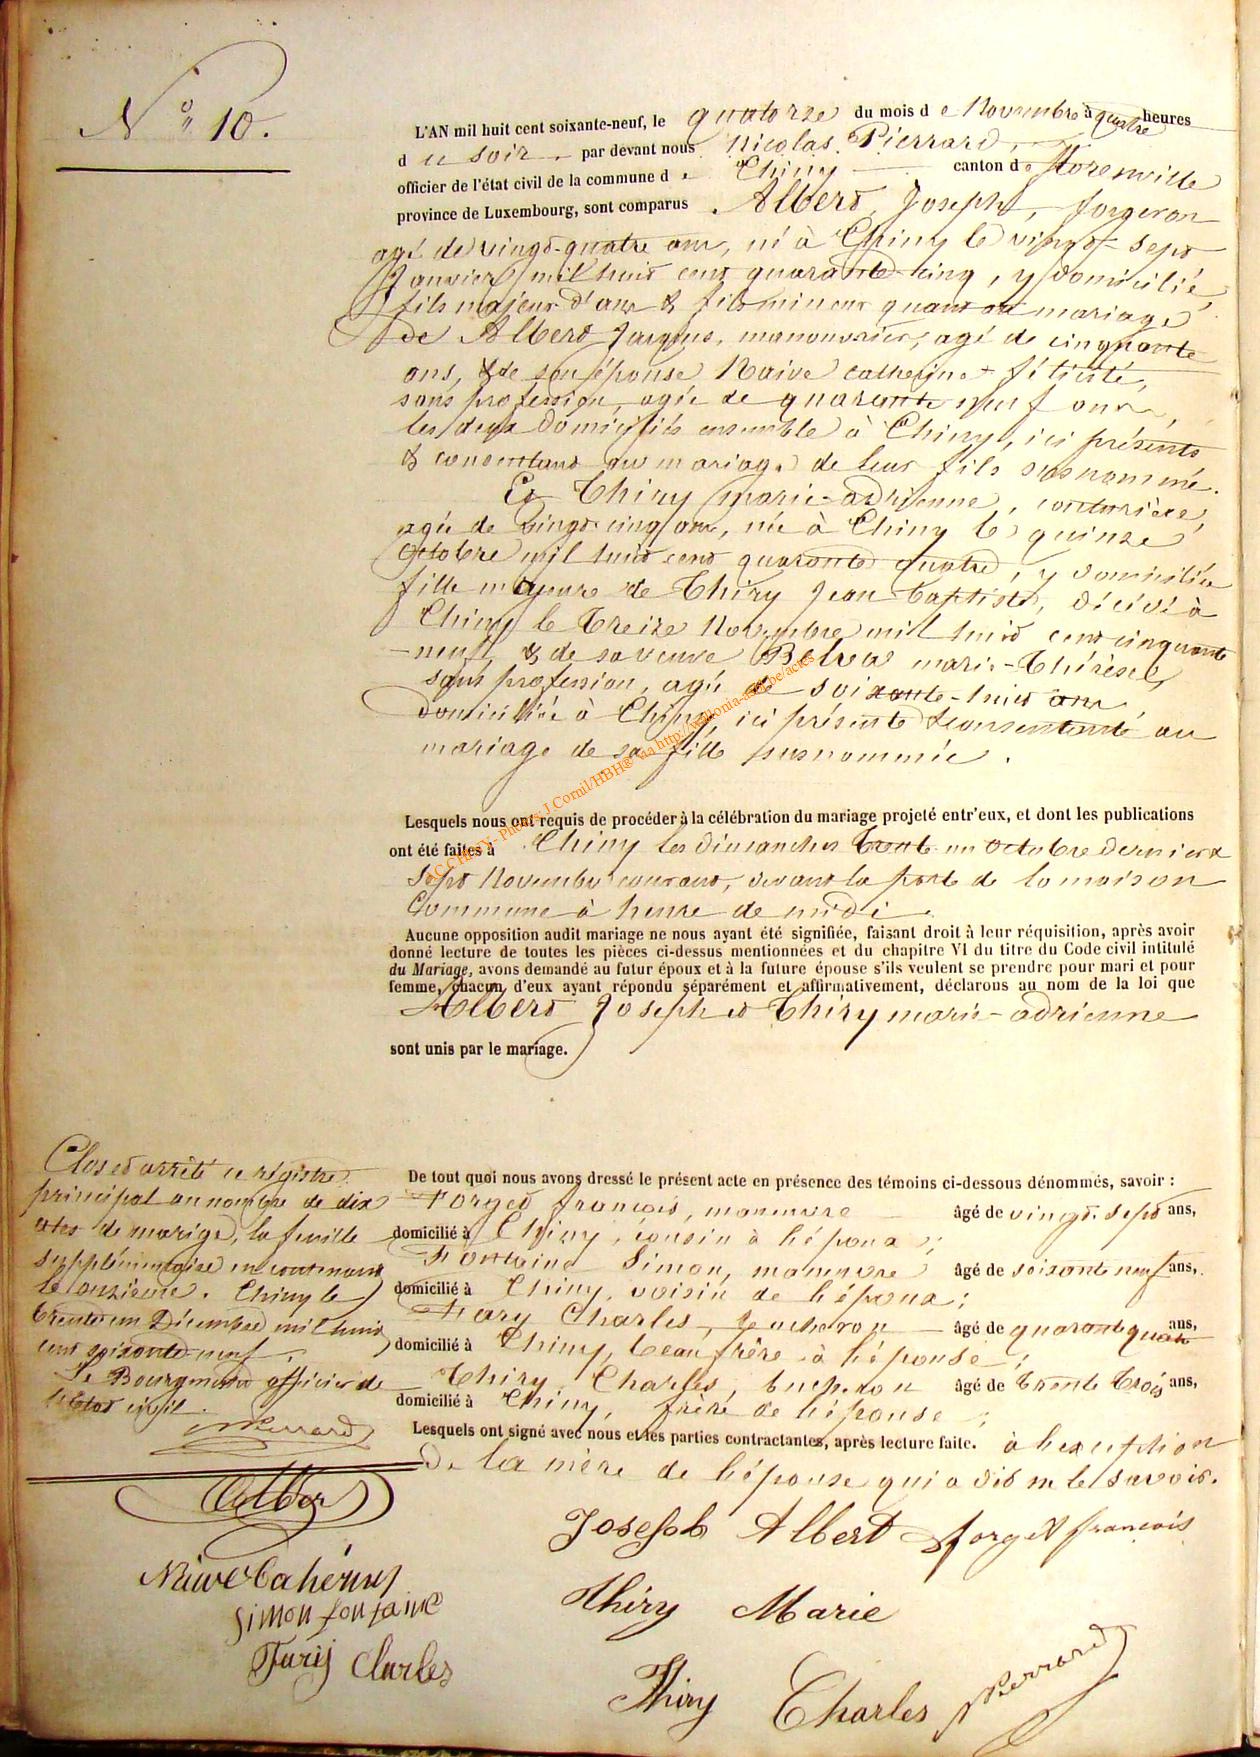 N° 10.
L'AN mil huit cent soixante-neuf, le quatorze du mois de Novembre à quatre heures
du soir, par devant nous Nicolas Pierrard,
officier de l'état civil de la commune de Chiny canton de Florenville
province de Luxembourg, sont comparus Albert Joseph, forgeron
agé de vingt-quatre ans, né à Chiny le vingt-sept
Janvier mil huit cent quarante-cinq, y domicilié,
fils majeur d'ans & fils mineur quant au mariage
de Albert Jacques, manouvrier, agé de cinquante
ans, & de son épouse Naive Catherine-félicité,
sans profession, agée de quarante neuf ans,
les deux domiciliés ensemble à Chiny, ici présents
& consentant au mariage de leur fils susnommé.
Et Thiry marie-adrienne, couturière,
agée de vingt-cinq ans, née à Chiny le quinze
Octobre mil huit cent quarante quatre, y domiciliée
fille majeure de Thiry Jean baptiste, décédé à
Chiny le treize Novembre mil huit cent cinquante
-neuf, & de sa veuve Belva marie-Thérèse,
sans profession, agée de soixante-huit ans
domiciliée à Chiny, ici présente & consentante au
mariage de sa fille susnommée.
AC CHINY - Photos J.Cornil/HBH® via http://wallonia-asbl.be/actes
Lesquels nous ont requis de procéder à la célébration du mariage projeté entr'eux, et dont les publications
ont été faites à Chiny les dimanches trente-un Octobre dernier &
Sept Novembre courant, devant la porte de la maison
Commune à heure de midi.
Aucune opposition audit mariage ne nous ayant été signifiée, faisant droit à leur réquisition, après avoir
donné lecture de toutes les pièces ci-dessus mentionnées et du chapitre VI du titre du Code civil intitulé
du Mariage, avons demandé au futur époux et à la future épouse s'ils veulent se prendre pour mari et pour
femme, chacun d'eux ayant répondu séparément et affirmativement, déclarons au nom de la loi que
Albert Joseph et Thiry marie-adrienne
sont unis par le mariage.
De tout quoi nous avons dressé le présent acte en présence des témoins ci-dessous dénommés, savoir :
Forget françois, manœuvre âgé de vingt-sept ans,
domicilié à Chiny, cousin à l'époux;
Fontaine Simon, manœuvre âgé de soixante neuf ans,
domicilié à Chiny, voisin de l'époux;
Fary Charles, bucheron âgé de quarante quatre ans,
domicilié à Chiny, beau frère à l'épouse;
Thiry Charles, bucheron âgé de trente trois ans,
domicilié à Chiny, frère de l'épouse;
Lesquels ont signé avec nous et les parties contractantes, après lecture faite. à l'exception
De la mère de l'épouse qui a dit ne le savoir.
Clos et arrêté ce régistre
principal au nombre de dix
actes de mariage, la feuille
supplémentaire en contenant
le onzième. Chiny le
trente-un Décembre mil huit
cent soixante-neuf.
Le Bourgmestre officier de
l'Etat civil.
NPierrard
Albert
Joseph Albert forget françois
Naive Cahérine
Simon fontaine
Thiry Marie
Fary Charles
Thiry Charles NPierrard